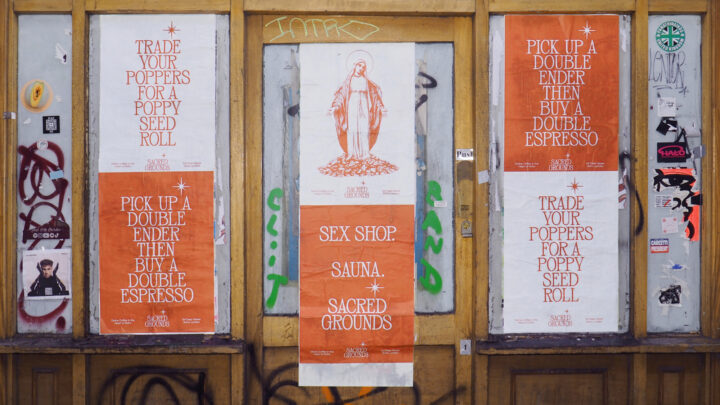 TRADE
YOUR
POPPERS
FOR A
POPPY
SEED
ROLL
SACRED
GROUNDS
PICK UP A
DOUBLE
ENDER
THEN
BUY A
DOUBLE
ESPRESSO
SACRED
GROUNDS
INTRO
SACRED
GROUNDS
SEX SHOP.
SAUNA.
SACRED
GROUNDS
SACRED
GROUNDS
Push
PICK UP A
DOUBLE
ENDER
THEN
BUY A
DOUBLE
ESPRESSO
SACRED
GROUNDS
TRADE
YOUR
POPPERS
FOR A
POPPY
SEED
ROLL
SACRED
GROUNDS
HALO